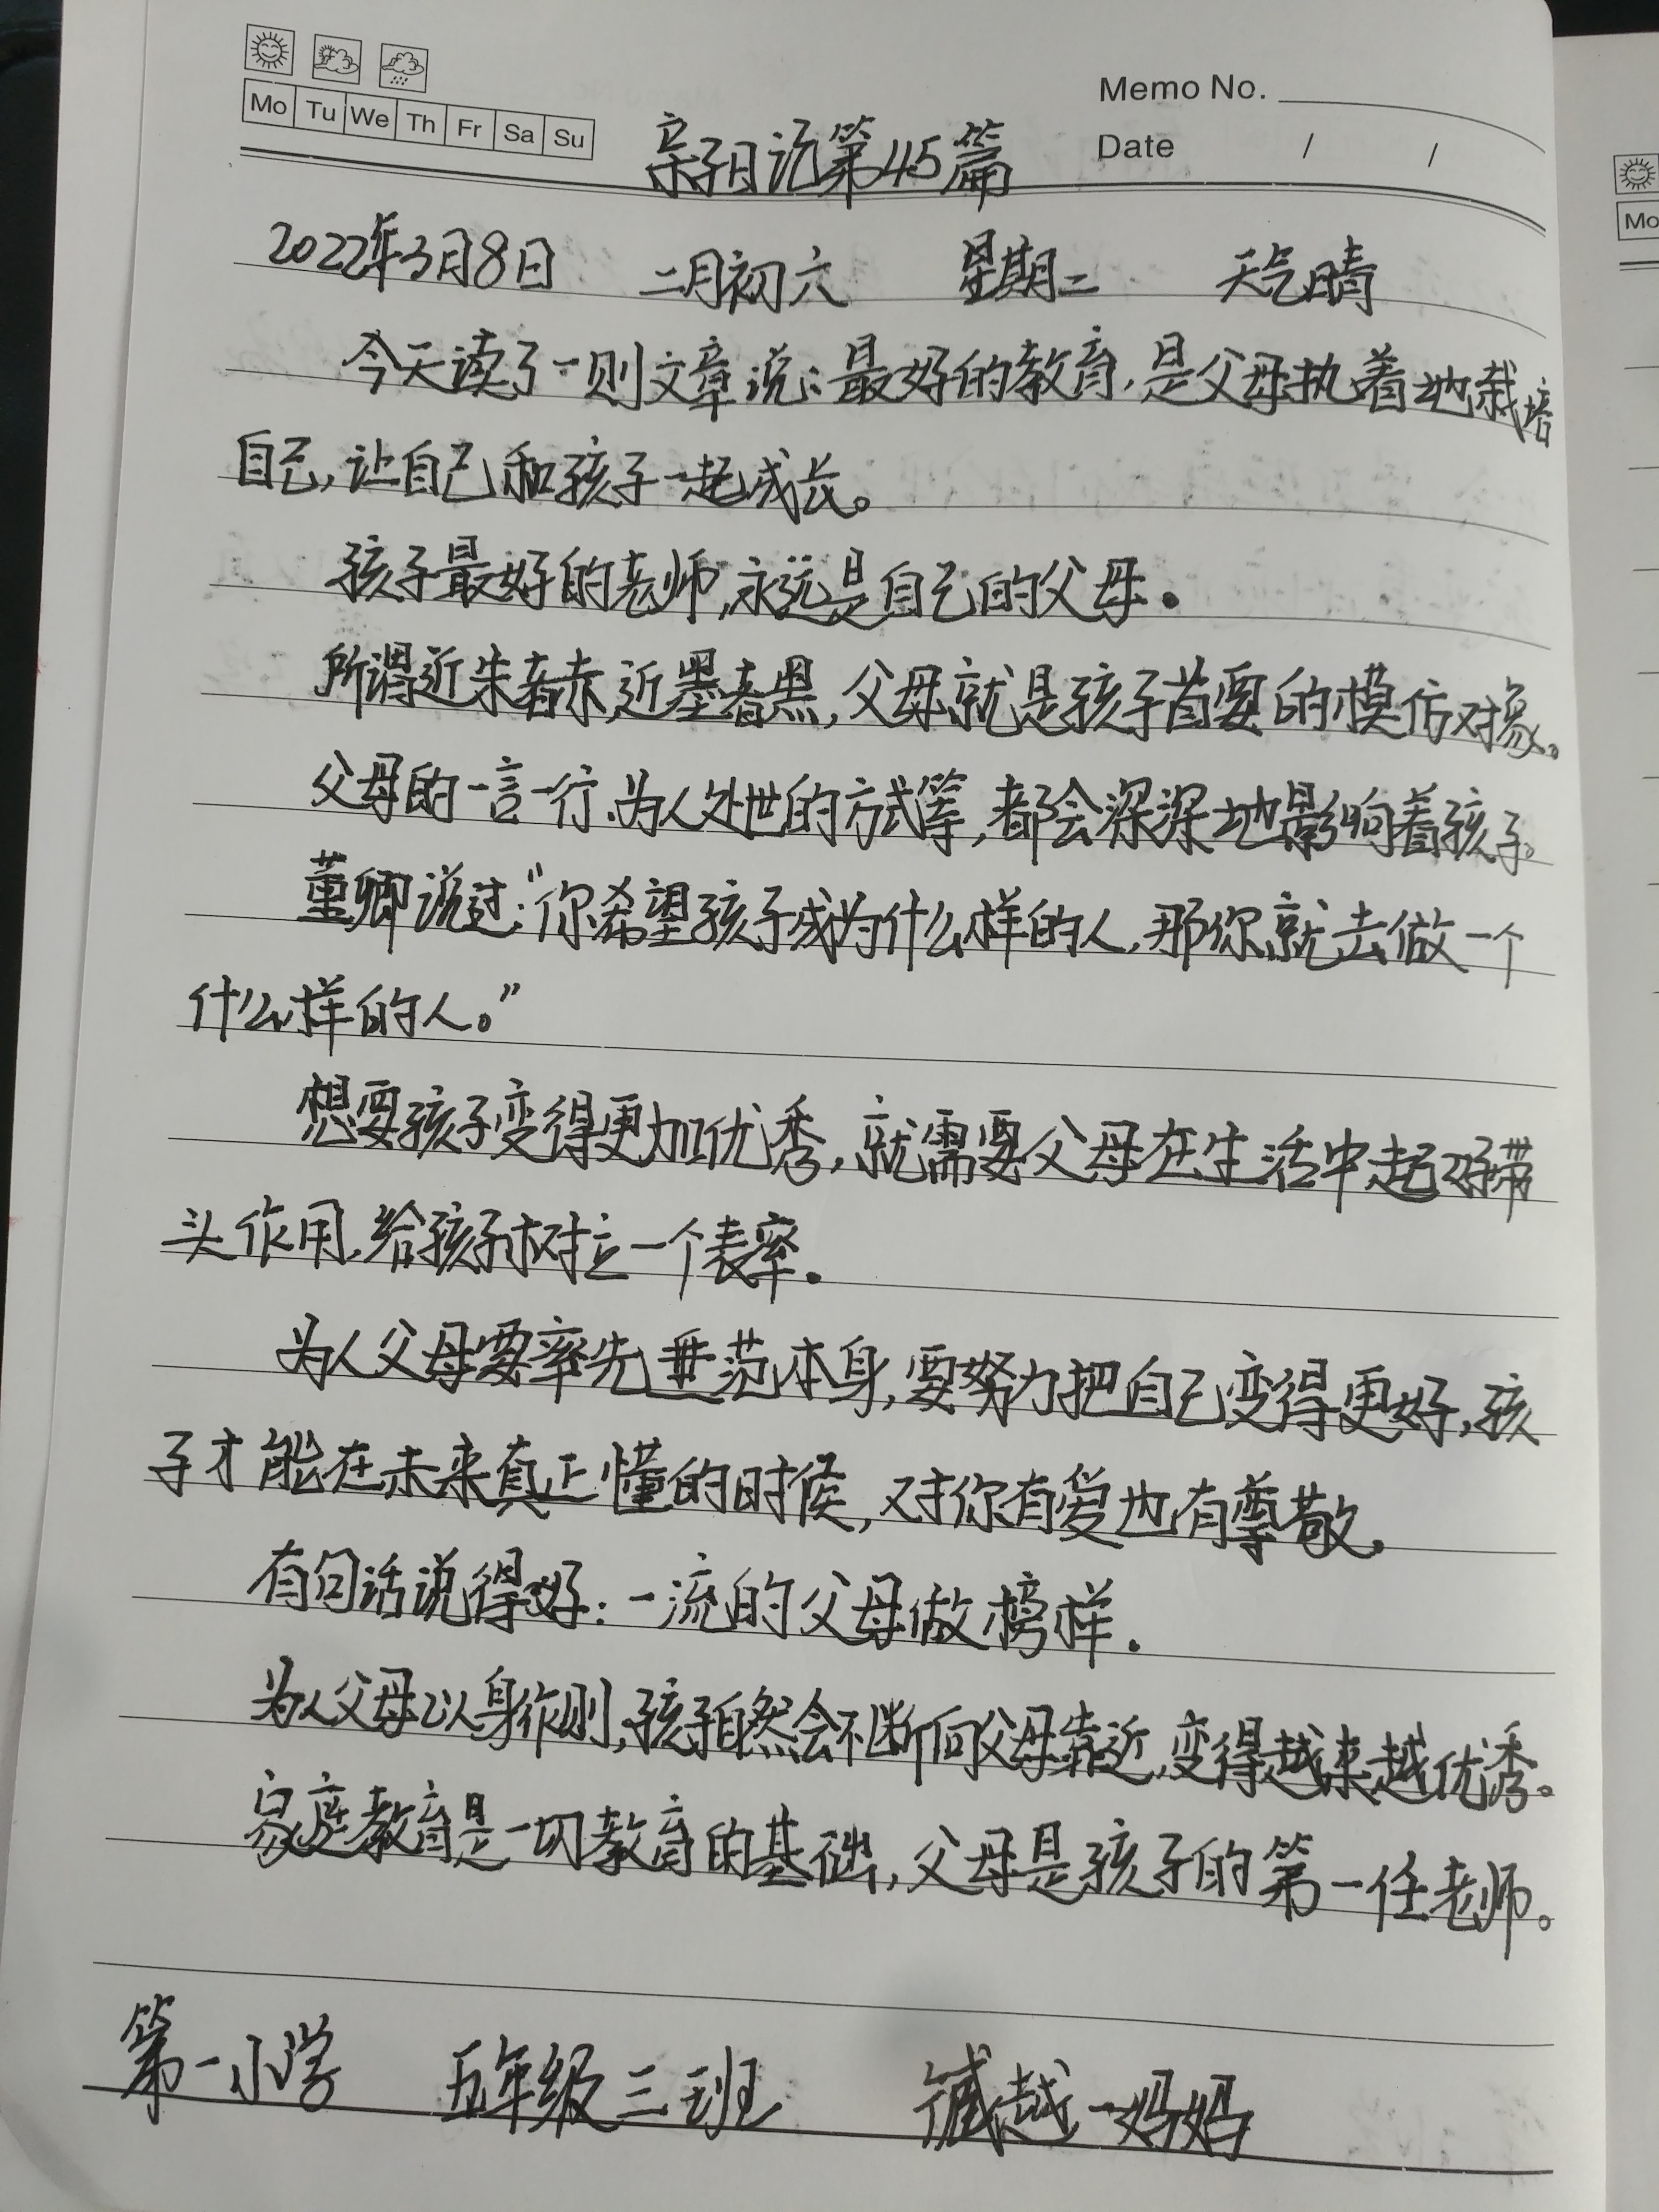 Memo No.
Mo Tu We Th Fr Sa Su
Date / /
亲子日记第45篇
2022年3月8日 二月初六 星期二 天气晴
今天读了一则文章说:最好的教育,是父母执着地栽培
自己,让自己和孩子一起成长。
孩子最好的老师,永远是自己的父母。
所谓近朱者赤,近墨者黑,父母就是孩子首要的模仿对象。
父母的一言一行、为人处世的方式等,都会深深地影响着孩子。
董卿说过:“你希望孩子成为什么样的人,那你就去做一个
什么样的人。”
想要孩子变得更加优秀,就需要父母在生活中起好带
头作用,给孩子树立一个表率。
为人父母要率先垂范本身,要努力把自己变得更好,孩
子才能在未来真正懂的时候,对你有爱也有尊敬。
有句话说得好:一流的父母做榜样.
为人父母以身作则,孩子自然会不断向父母靠近,变得越来越优秀。
家庭教育是一切教育的基础,父母是孩子的第一任老师。
第一小学 五年级三班 越一妈妈
Mo